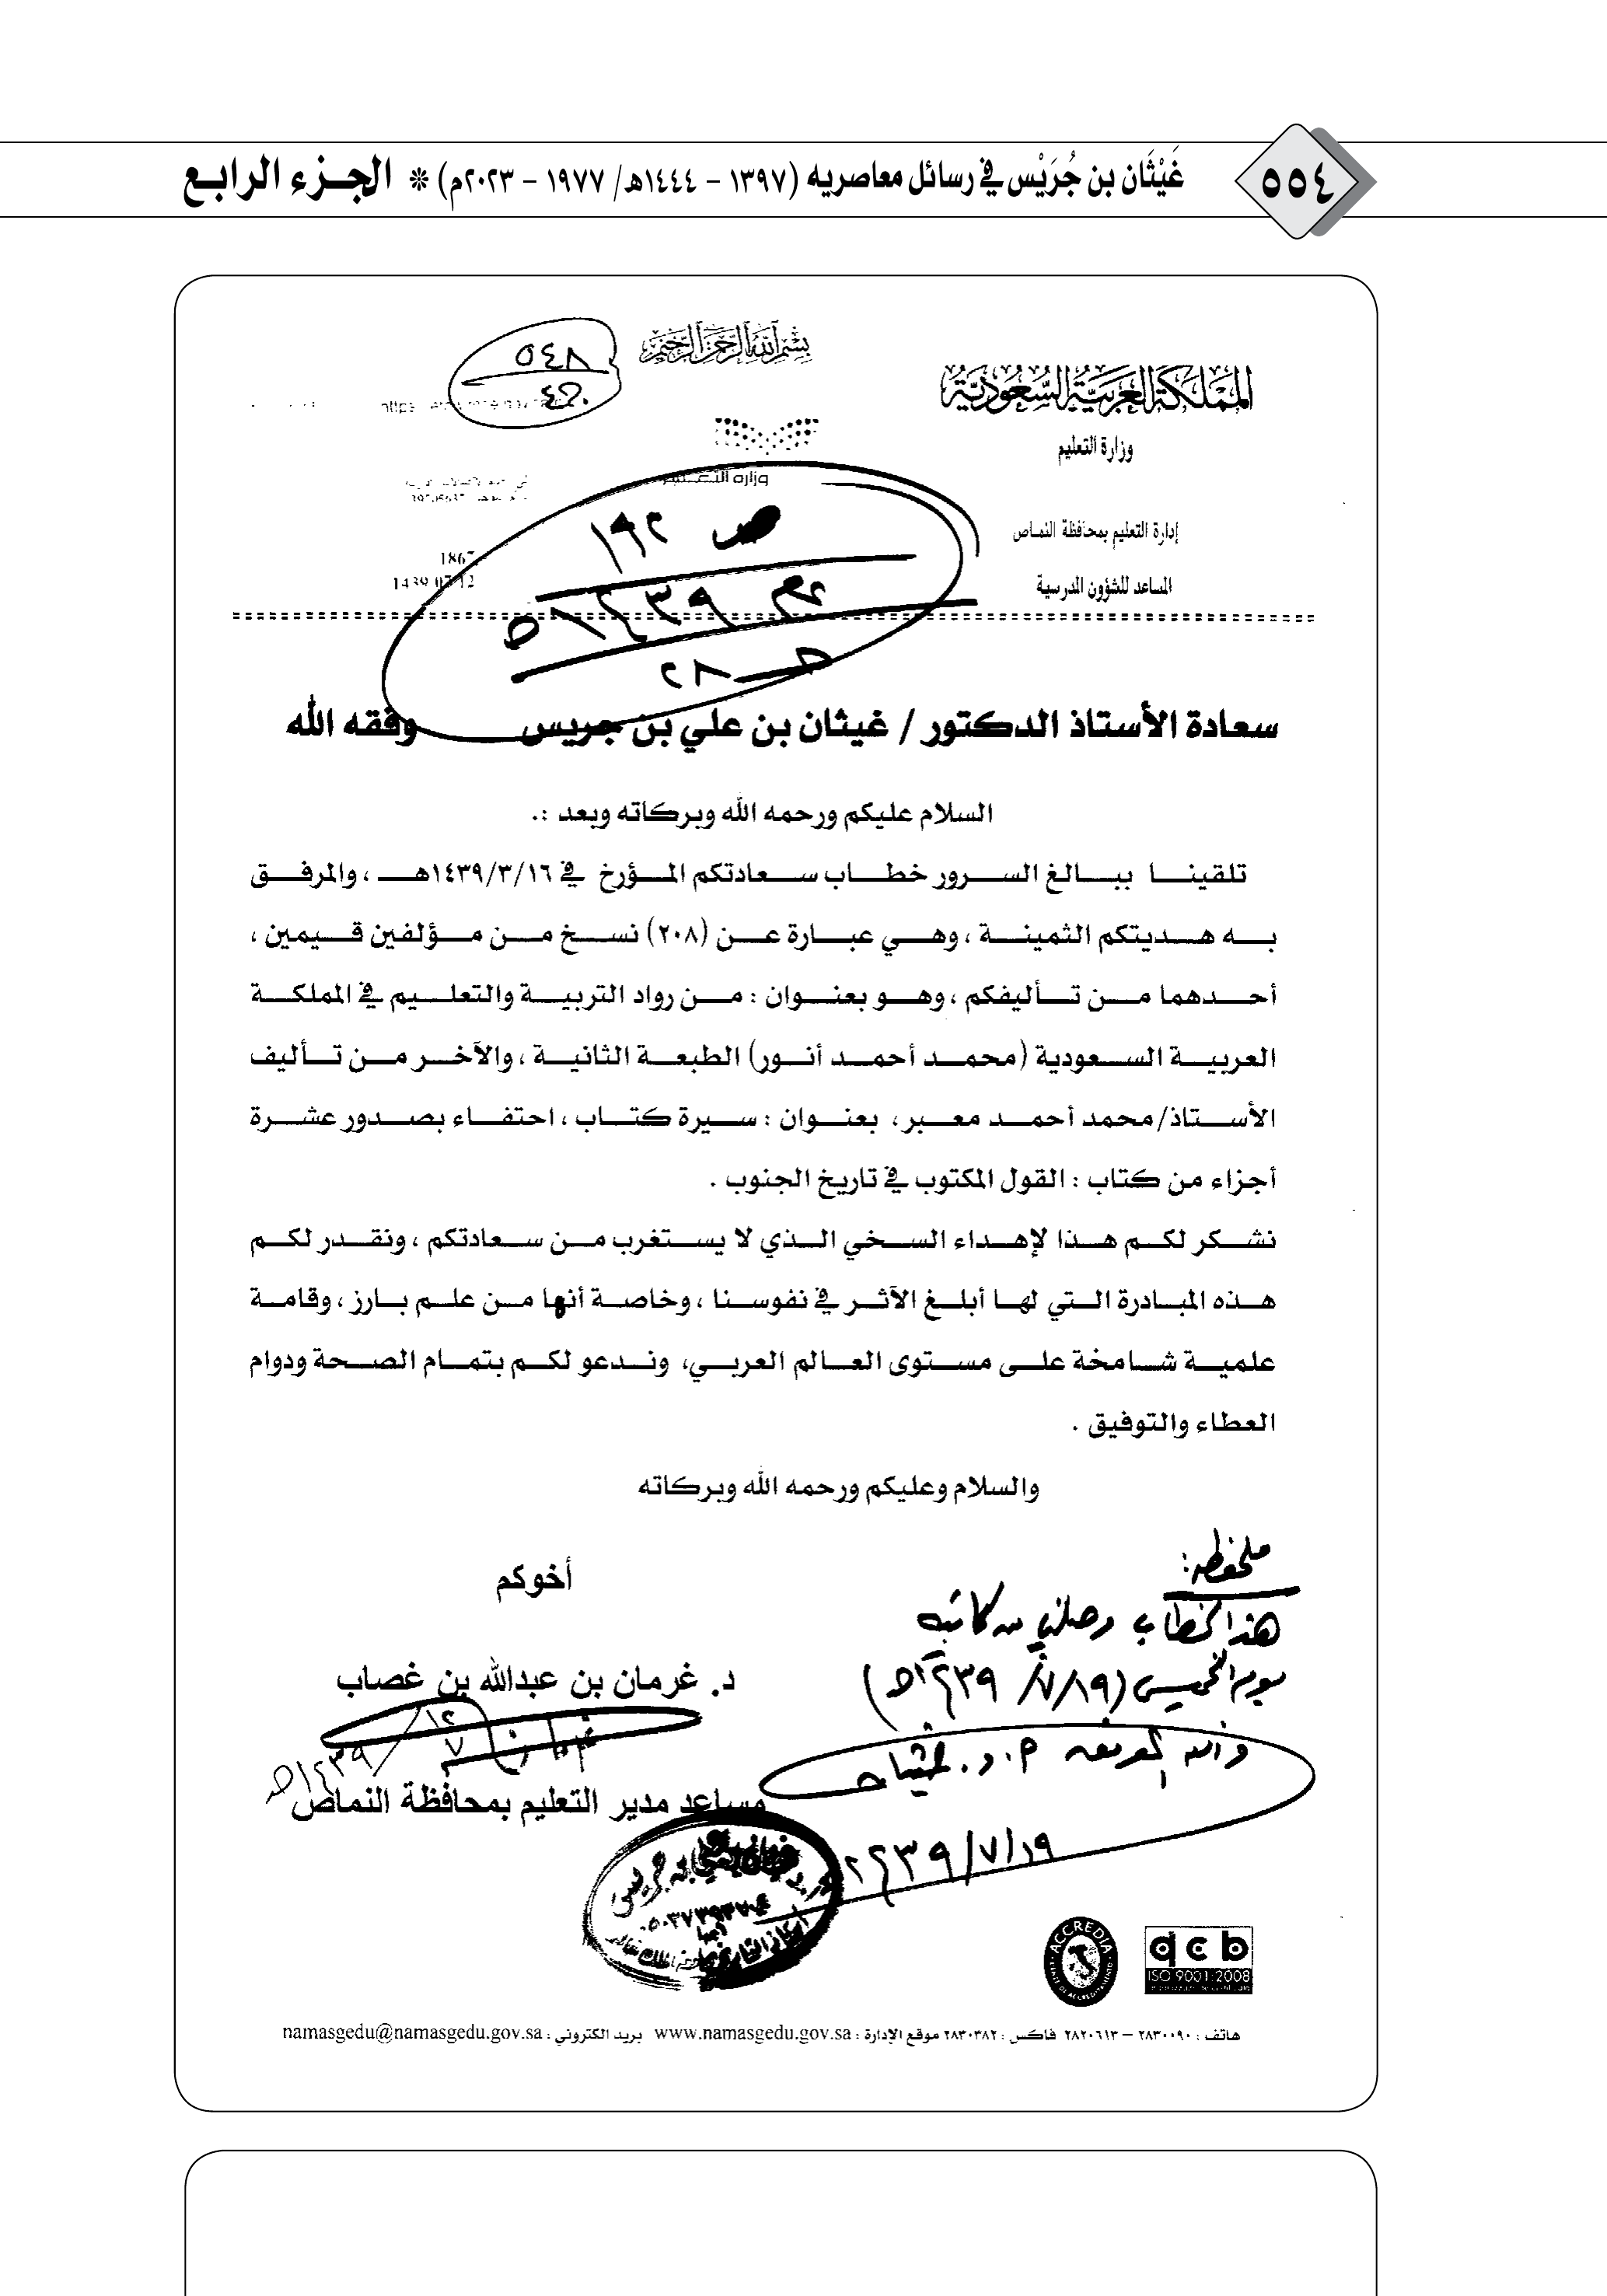 ٥٥٤
غَيْثَان بن جُرَيْس في رسائل معاصريه (١٣٩٧ - ١٤٤٤هـ/ ١٩٧٧ - ٢٠٢٣م) * الجـزء الرابـع
بسم الله الرحمن الرحيم
٥٤٨
المملكة العربية السعودية
وزارة التعليم
وزارة التعليم
ص ١٩٢
إدارة التعليم بمحافظة النماص
1867
1439 07 12
المساعد للشؤون المدرسية
١٤٣٩هـ
٢٨
سعادة الأستاذ الدكتور / غيثان بن علي بن جريس وفقه الله
السلام عليكم ورحمه الله وبركاته وبعد :.
تلقينا ببالغ السرور خطاب سعادتكم المؤرخ في ١٤٣٩/٣/١٦هـ ، والمرفق
به هديتكم الثمينة ، وهي عبارة عن (٢٠٨) نسخ من مؤلفين قيمين ،
أحدهما من تأليفكم ، وهو بعنوان : من رواد التربية والتعليم في المملكة
العربية السعودية (محمد أحمد أنور) الطبعة الثانية ، والآخر من تأليف
الأستاذ/ محمد أحمد معبر ، بعنوان : سيرة كتاب ، احتفاء بصدور عشرة
أجزاء من كتاب : القول المكتوب في تاريخ الجنوب .
نشكر لكم هذا لإهداء السخي الذي لا يستغرب من سعادتكم ، ونقدر لكم
هذه المبادرة التي لها أبلغ الآثر في نفوسنا ، وخاصة أنها من علم بارز ، وقامة
علمية شامخة على مستوى العالم العربي، وندعو لكم بتمام الصحة ودوام
العطاء والتوفيق .
والسلام وعليكم ورحمه الله وبركاته
ملحوظة:
أخوكم
هذا الخطاب وصلني من كاتبه
يوم الخميس (١٤٣٩/٧/١٩هـ)
د. غرمان بن عبدالله بن غصاب
١٢/٧/١٤٣٩هـ
والله الموفق أ.د. غيثان
مساعد مدير التعليم بمحافظة النماص
١٤٣٩/٧/١٩
ACCREDIA
qcb
ISO 9001:2008
هاتف : ٢٨٣٠٠٩٠ – ٢٨٢٠٦١٣ فاكس : ٢٨٣٠٣٨٢ موقع الإدارة : www.namasgedu.gov.sa بريد الكتروني : namasgedu@namasgedu.gov.sa